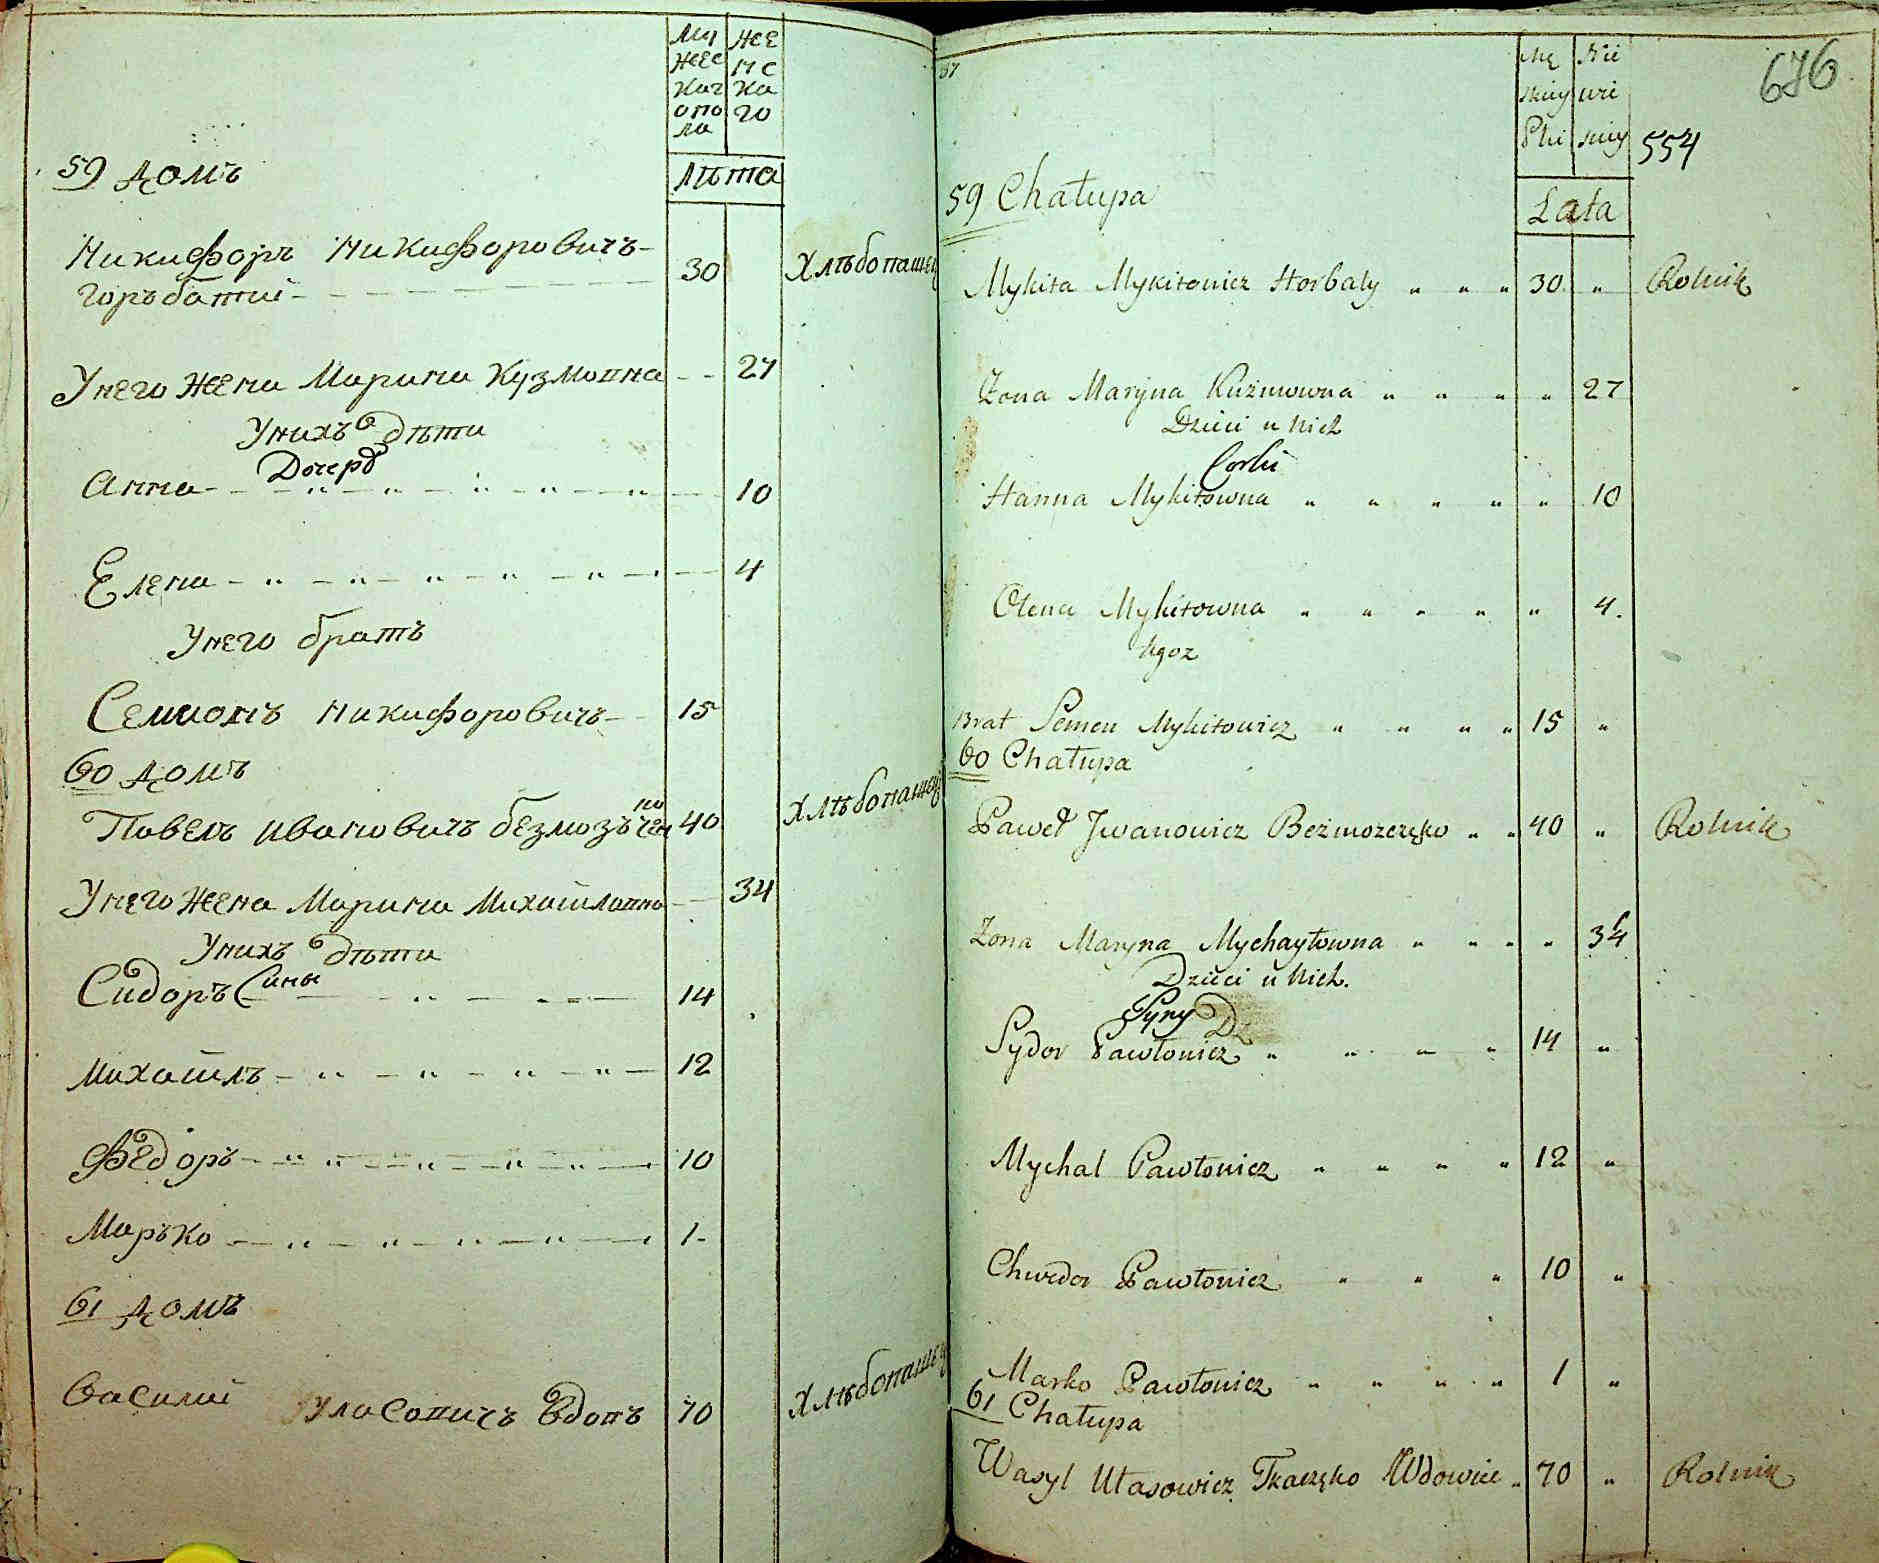 Му
жес
каг
опо
ла
же
нс
ка
го
лѣта
59 домъ
Никифоръ Никифоровичъ
Горъбатий 30 Хлѣбопашец
Унего жена Марина Кузмовна 27
Унихъ дѣти
Дочерѣ
Анна 10
Елена 4
Унего братъ
Семионъ Никифоровичъ 15
60 домъ
Павелъ Ивановичъ безмозъ 40 Хлѣбопашец
Унего жена Марина Михайловна 34
Унихъ дѣти
Сидоръ Сины 14
Михайлъ 12
Федоръ 10
Марько 1
61 домъ
Василий Уласовичъ Вдовъ 70 Хлѣбопашец
37
Mę
skiey
Płci
Nie
wie
sciey
676
554
Lata
59 Chałupa
Mykita Mykitowicz Horbaty 30 Rolnik
Żona Maryna Kuźmowna 27
Dzieci u nich
Corki
Hanna Mykitowna 10
Olena Mykitowna 4.
Ugoz
Brat Semen Mykitowicz 15
60 Chałupa
Paweł Jwanowicz Bezmozczęko 40 Rolnik
Żona Maryna Mychayłowna 34
Dzieci u nich.
Syny
Sydor Pawłowicz 14
Mychal Pawłowicz 12
Chwedor Pawłowicz 10
Marko Pawłowicz 1
61 Chałupa
Wasyl Ułasowicz Tkaczęko Wdowiec 70 Rolnik